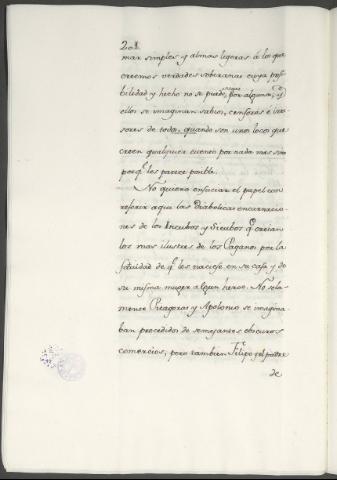 201.
mar simples y almas ligeras á los que
creemos verdades soberanas cuya posi-
bilidad y hecho no se puede, por alguna, y
ellos se imaginan sabios, censores é
sores de todo, quando son unos locos que
creen qualquier cuento por nada mas sino
porq.e les parece posible.
No quiero ensuciar el papel con
referir aqui las Diabolicas encarnacio-
nes de los Incubos y Sucubos q.e creian
los mas ilustres de los Paganos por la
fatuidad de q.e les naciese en su casa y de
su misma muger algun heroe. No sola-
mente Pitagoras y Apolonio se imagina-
ban procedidos de semejantes obscuros
comercios, pero tambien Filipo y el padre
de